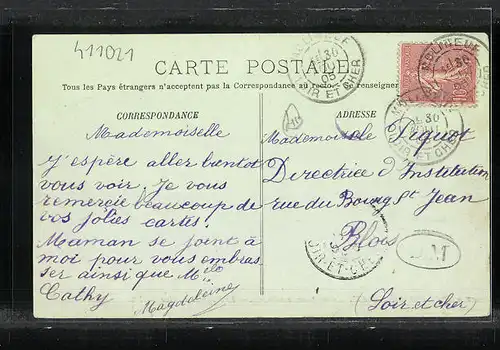 411021
CARTE POSTALE
Tous les Pays étrangers n'acceptent pas la Correspondance au recto. Se renseigner
CORRESPONDANCE
Mademoiselle
J'espère aller bientot
vous voir. Je vous
remercie beaucoup de
vos jolies cartes.
Maman se joint à
moi pour vous embras
ser ainsi que Mlle
Cathy
Magdeleine
ADRESSE
Mademoiselle Piquot
Directrice d'Institution
rue du Bourg St Jean
Blois
(Loir et cher)
30
05
LOIR ET CHER
30
LOIR ET CHER
LOIR-ET-CHER
M